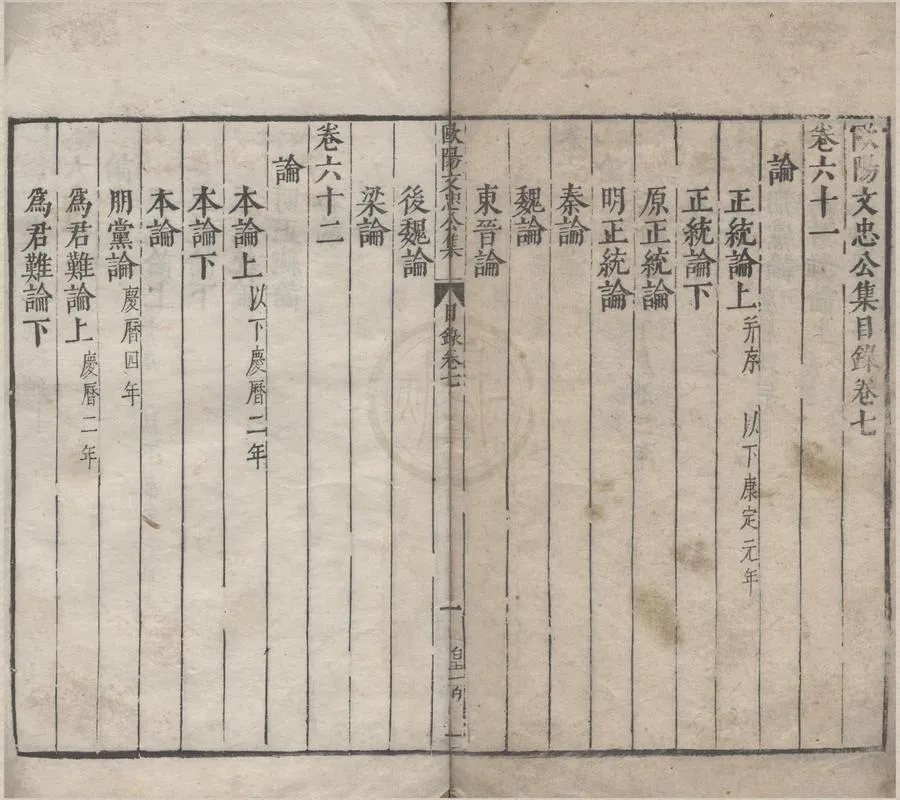 歐陽文忠公集目錄卷七
卷六十一
論
正統論上 并序 以下康定元年
正統論下
原正統論
明正統論
秦論
魏論
東晉論
歐陽文忠公集 目錄卷七 一
後魏論
梁論
卷六十二
論
本論上 以下慶曆二年
本論下
本論
朋黨論 慶曆四年
為君難論上 慶曆二年
為君難論下